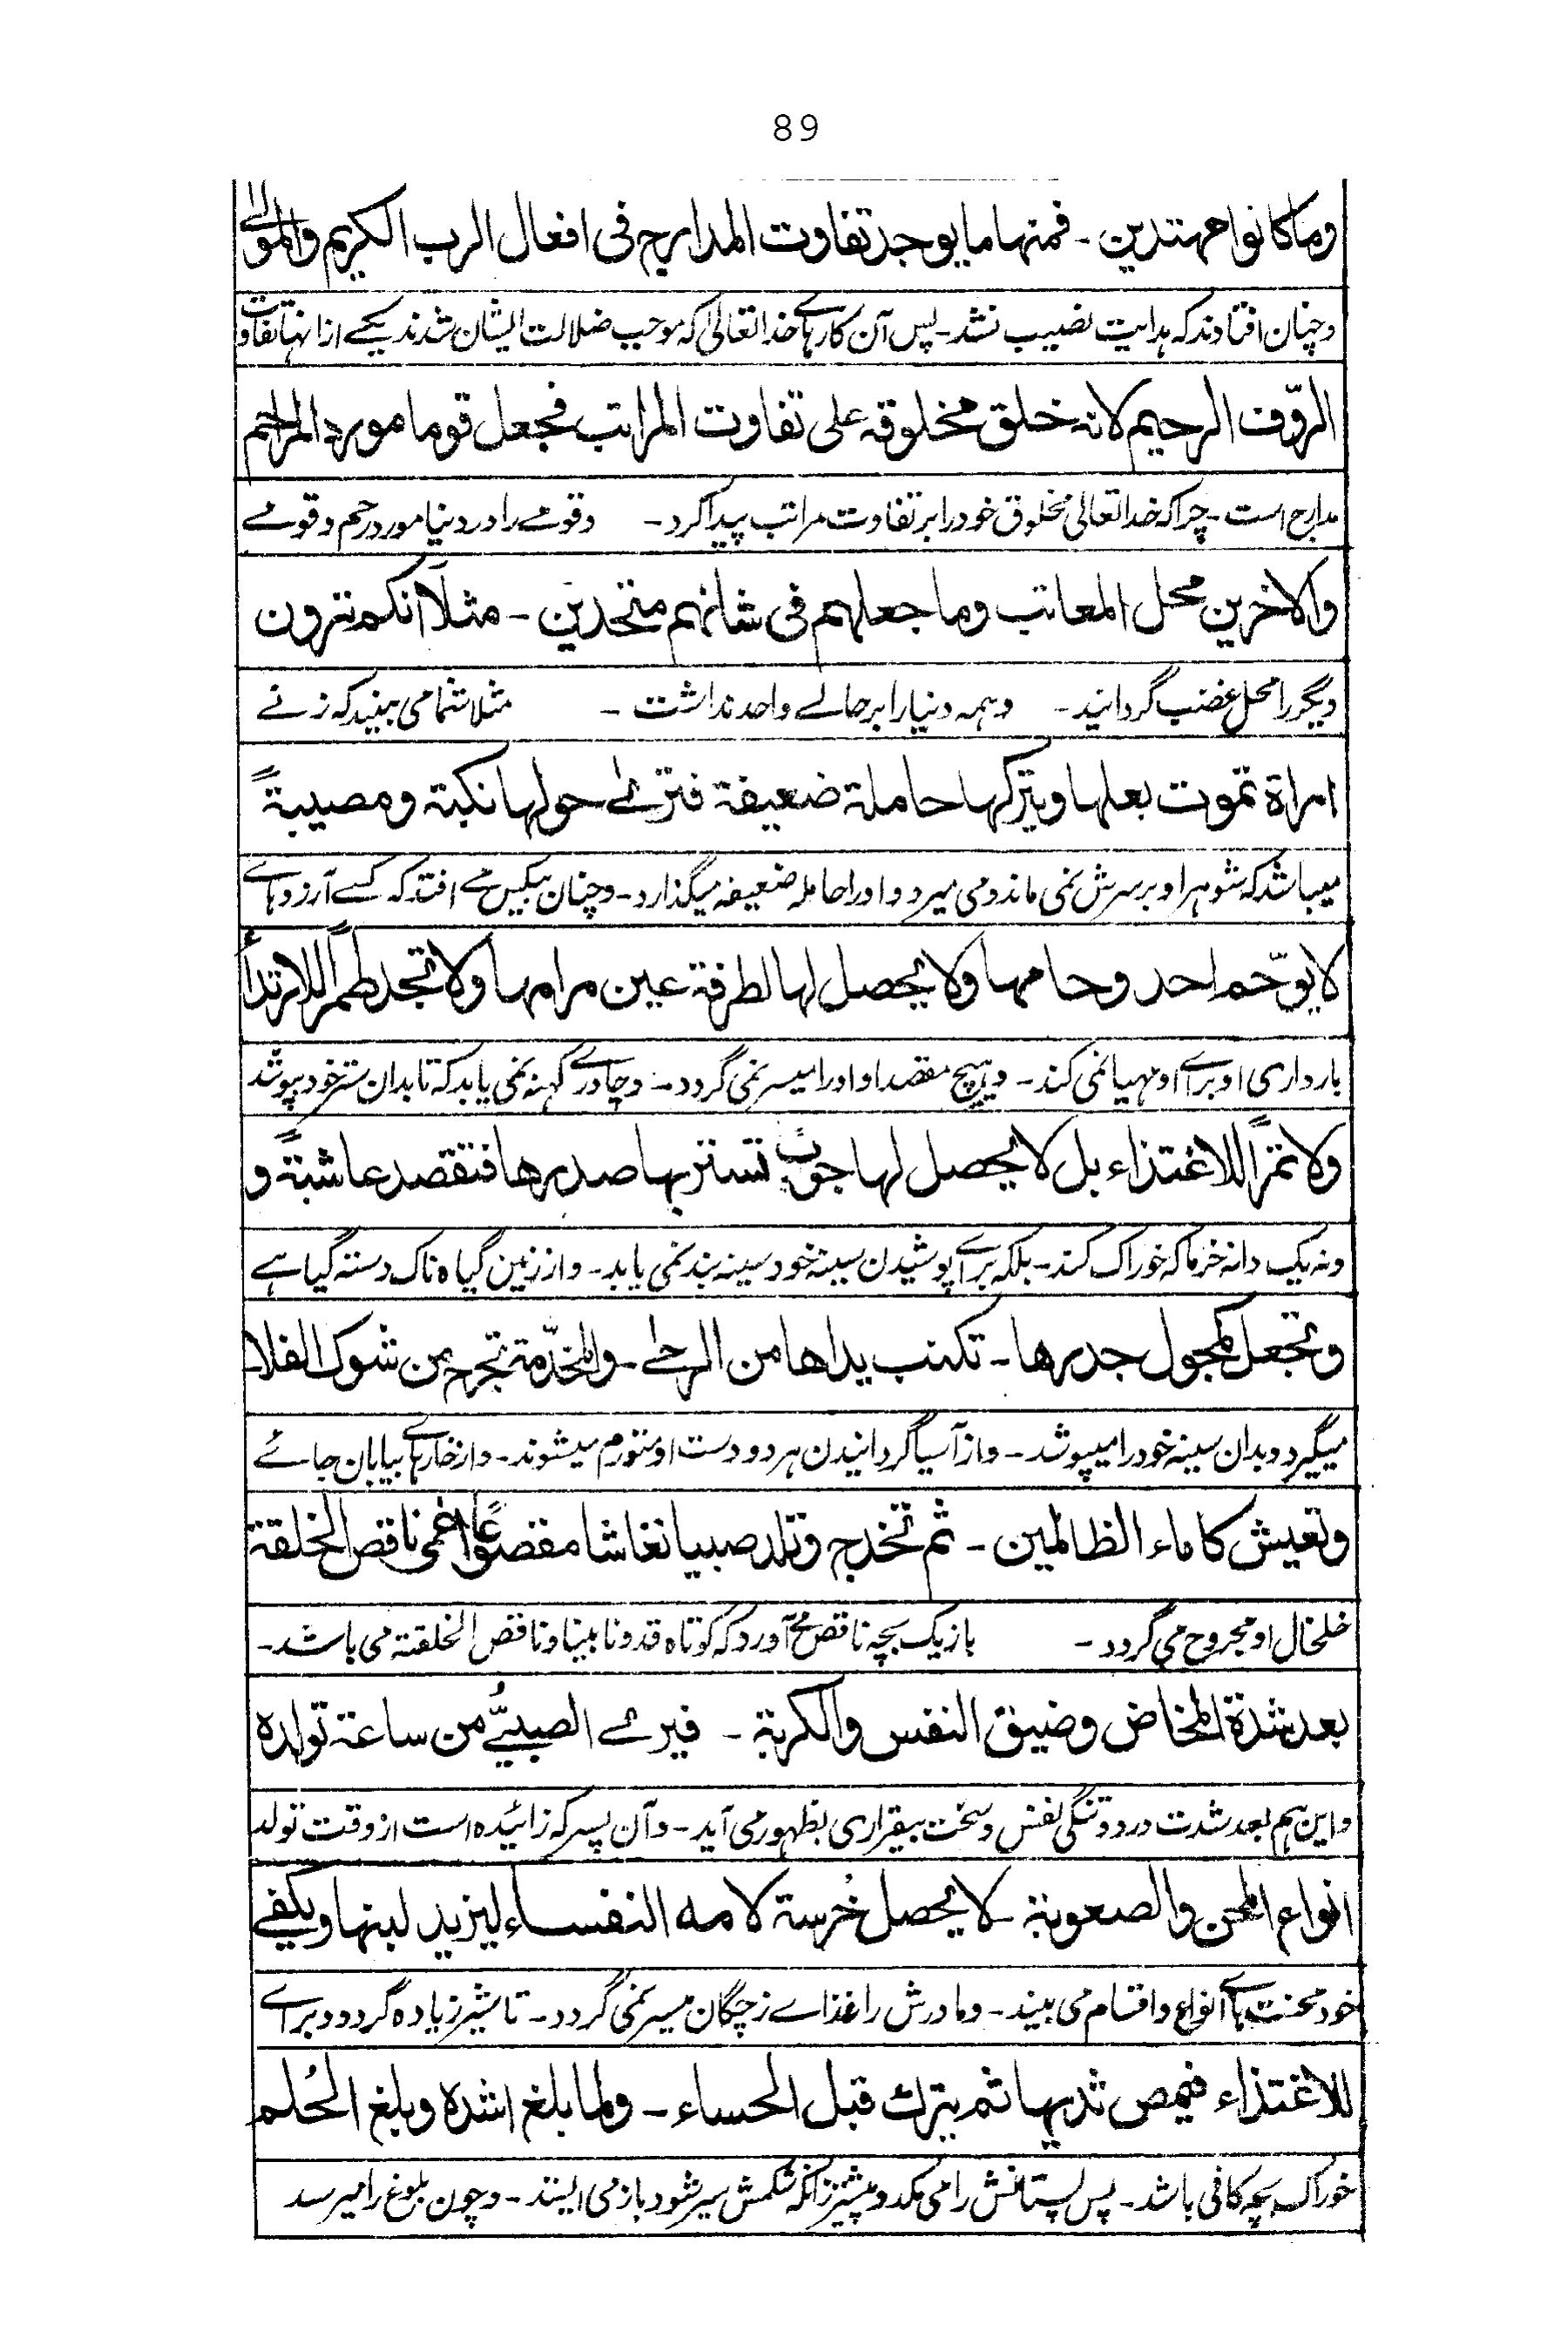 89
وما كانوا مهتدين - فمنها ما يوجد تفاوت المدارج فى افعال الرب الكريم والمولى
وچنان افتادند که هدایت نصیب نشد - پس آن کارہائے خدا تعالیٰ که موجب ضلالت ایشان شدند یکے ازانہا تفاوت
الرؤف الرحيم لانه خلق مخلوقه على تفاوت المراتب فجعل قوما مورد المراحم
مدارج است - چرا که خدا تعالیٰ مخلوق خود را بر تفاوت مراتب پیدا کرد - وقومے را در دنیا مورد رحم وقومے
والاخرين محل المعاتب وما جعلهم فى شانهم متحدين - مثلًا انكم ترون
دیگر را محل غضب گردانید - وہمہ دنیا را بر حالے واحد نداشت - مثلا شما می بینید که زنے
امراة تموت بعلها ويتركها حاملة ضعيفة فترى حولها نكبة ومصيبةً
میباشد که شوہر او بر سرش نمی ماند و می میرد و او را حاملہ ضعیفہ میگذارد - وچنان بیکس مے افتد که کسے آرزوہائے
لا يوحّم احد وحامها ولا يحصل لها لطرفة عين مرامها ولا تجد طمرًا للارتداء
بارداری او برائے او مہیا نمی کند - وہیچ مقصد او او را میسر نمی گردد - وچادرے کہنہ نمی یابد که تا بدان ستر خود بپوشد
ولا تمرًا للاغتذاء بل لا يحصل لها جوبٌ تستتر بها صدرها فتقصد عاشبةً و
ونہ یک دانہ خرما که خوراک کند - بلکہ برائے پوشیدن سینہ خود سینہ بند نمی یابد - واز زمین گیاہ ناک دستہ گیاہے
وتجعل كمجول جدرها - تكنب يداها من الرحى - والمخدّمة تجرح من شوك الفلا
میگیرد و بدان سینہ خود را میپوشد - واز آسیا گردانیدن ہر دو دست او متورم میشوند - واز خارہائے بیابان جائے
وتعيش كاماء الظالمين - ثم تخدج وتلد صبيا نغاشا مفضوعًا اعمى ناقص الخلقة
خلخال او مجروح می گردد - باز یک بچہ ناقص مے آورد که کوتاہ قد و نابینا و ناقص الخلقة می باشد -
بعد شدة المخاض وضيق النفس والكربة - فيرى الصبىُّ من ساعة تولده
واین ہم بعد شدت درد و تنگی نفس و سخت بیقراری بظہور می آید - وآن پسر که زائیده است از وقت تولد
انواع المحن والصعوبة لا يحصل خُرسة لامه النفساء ليزيد لبنها ويكفى
خود محنت ہائے انواع واقسام می بیند - ومادرش را غذائے زچگان میسر نمی گردد - تا شیر زیادہ گردد و برائے
للاغتذاء فيمص ثديها ثم يترك قبل الحساء - ولما بلغ اشده وبلغ الحُلم
خوراک بچہ کافی باشد - پس پستانش را می مکد و پیشتر زانکہ شکمش سیر شود باز می ایستد - وچون بلوغ را میرسد